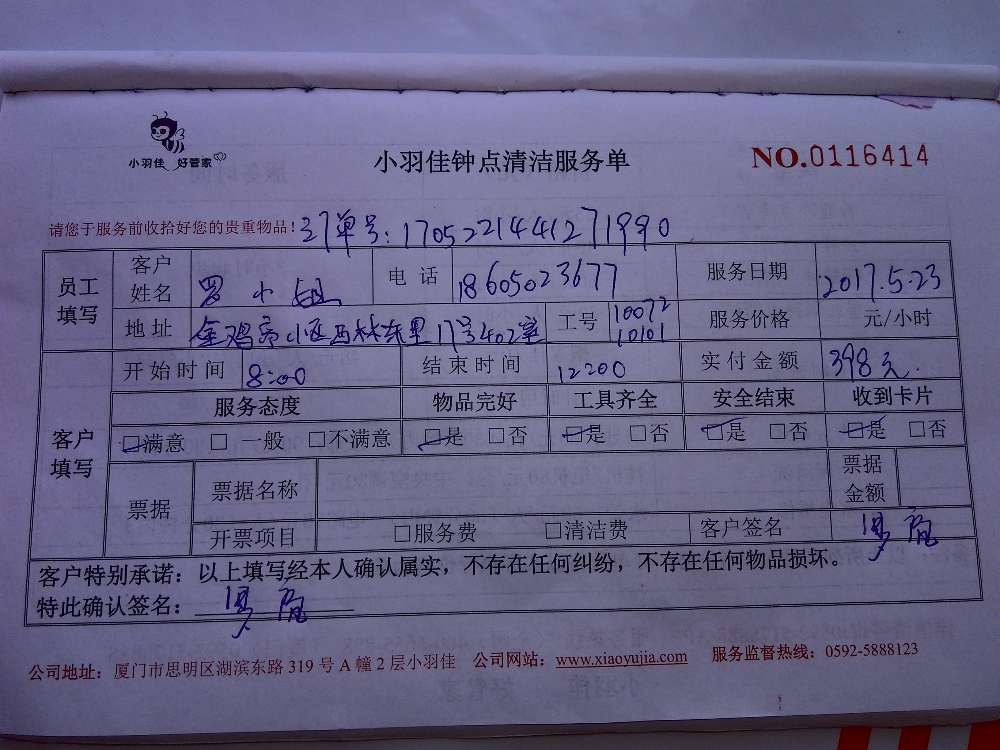 小羽佳 好管家
小羽佳钟点清洁服务单
NO.0116414
请您于服务前收拾好您的贵重物品！订单号:170522144127 1990
员工填写 客户姓名 罗小姐 电话 18605023677 服务日期 2017.5.23
地址 金鸡亭小区西林东里17号402室 工号 10072 10101 服务价格 元/小时
客户填写 开始时间 8:00 结束时间 12:00 实付金额 398元.
服务态度 物品完好 工具齐全 安全结束 收到卡片
☑满意 □一般 □不满意 ☑是 □否 ☑是 □否 ☑是 □否 ☑是 □否
票据 票据名称 票据金额
开票项目 □服务费 □清洁费 客户签名
客户特别承诺：以上填写经本人确认属实，不存在任何纠纷，不存在任何物品损坏。
特此确认签名：
公司地址：厦门市思明区湖滨东路 319 号 A 幢 2 层小羽佳 公司网站：www.xiaoyujia.com 服务监督热线：0592-5888123